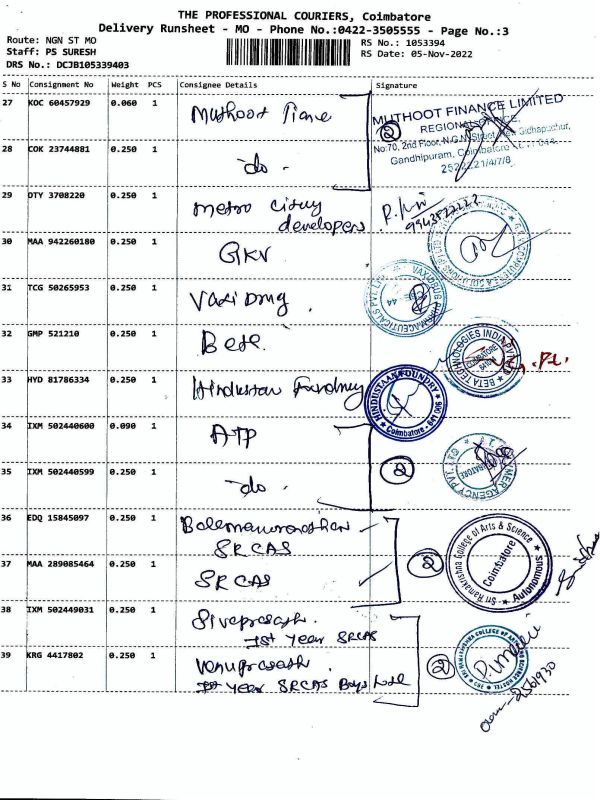 THE PROFESSIONAL COURIERS, Coimbatore
Delivery Runsheet - MO - Phone No.:0422-3505555 - Page No.:3
Route: NGN ST MO
RS No.: 1053394
Staff: PS SURESH
RS Date: 05-Nov-2022
DRS No.: DCJB105339403
S No Consignment No Weight PCS Consignee Details Signature
27 KOC 60457929 0.060 1 Muthoot
MUTHOOT FINANCE LIMITED
REGIONAL OFFICE,
No:70, 2nd Floor, N.G.N Street, New Sidhapudur,
Gandhipuram, Coimbatore
2522221/4/7/8
2
28 COK 23744881 0.250 1 do.
29 OTY 3708220 0.250 1 metro
developers
30 MAA 942260180 0.250 1 GKV
31 TCG 50265953 0.250 1 Vaxi Drug.
VAXIDRUG PHARMACEUTICALS PVT. LTD
32 GMP 521210 0.250 1
BETA TECHNOLOGIES INDIA PVT
COIMBATORE
33 HYD 81786334 0.250 1 Hindustan
HINDUSTAAN FOUNDRY
Coimbatore - 641 006
34 IXM 502440600 0.090 1 ATP
35 IXM 502440599 0.250 1 do.
2
AGENCY PVT. LTD
36 EDQ 15845097 0.250 1
SRCAS
37 MAA 289085464 0.250 1 SRCAS
2
Sri Ramakrishna College of Arts & Science
Coimbatore
Autonomous
38 IXM 502449031 0.250 1 Sivaprasath.
Ist Year SRCAS
39 KRG 4417802 0.250 1 Venuprasath.
Ist Year SRCAS Boys
2